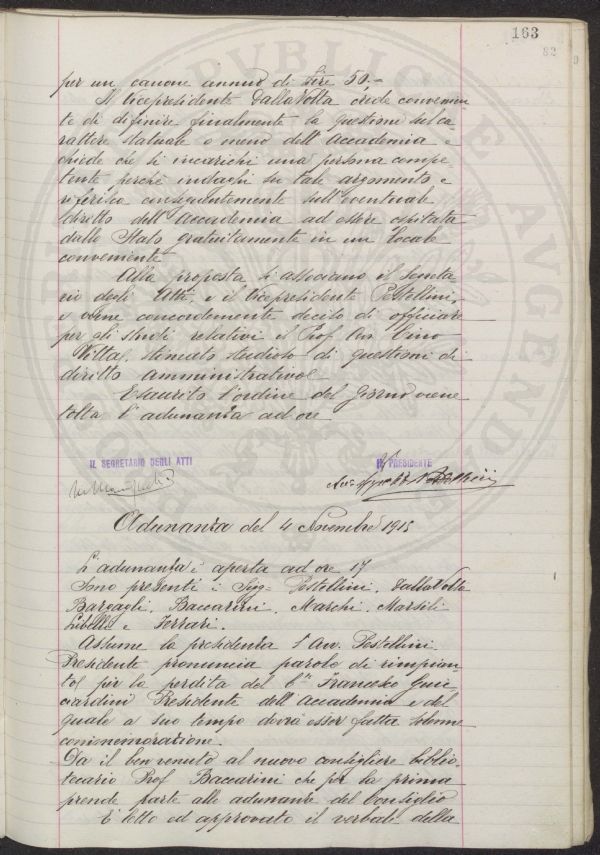 163
82
per un canone annuo di lire 50.=
Il Vicepresidente Dalla Volta crede convenien
te di definire finalmente la questione sul ca
rattere statuale o meno dell'Accademia e
chiede che si incarichi una persona compe
tente perchè indaghi su tale argomento e
riferisca conseguentemente sull'eventuale
diritto dell'Accademia ad essere ospitata
dallo Stato gratuitamente in un locale
conveniente.
Alla proposta si associano il Segreta
rio degli Atti, e il Vicepresidente Pestellini,
e viene concordemente deciso di officiare
per gli studi relativi il Prof. Avv. Cino
Vitta, stimato studioso di questioni di
diritto amministrativo.
Esaurito l'ordine del giorno viene
tolta l'adunanza ad ore
IL SEGRETARIO DEGLI ATTI
IL PRESIDENTE
Adunanza del 4 Novembre 1915
L'adunanza è aperta ad ore 17
Sono presenti i Sigg. Pestellini, Dalla Volta
Bargagli, Baccarini, Marchi, Marsili
Libelli e Ferrari.
Assume la presidenza l'Avv. Pestellini.
Presidente pronuncia parole di rimpian
to per la perdita del Cte Francesco Guic
ciardini Presidente dell'Accademia e del
quale a suo tempo dovrà esser fatta solenne
commemorazione.
Da il ben venuto al nuovo consigliere biblio
tecario Prof. Baccarini che per la prima
prende parte alle adunanze del Consiglio
E' letto ed approvato il verbale della